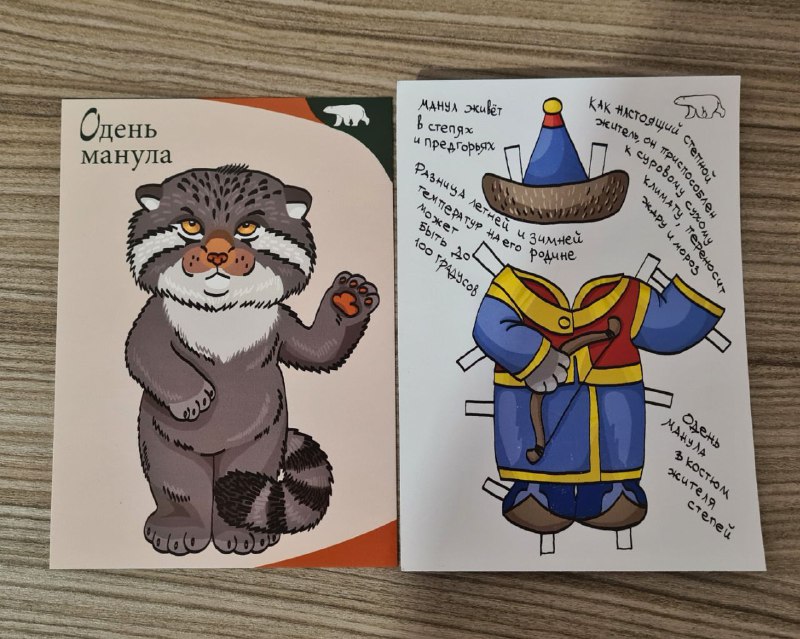 Одень
манула
МАНУЛ ЖИВЁТ
В СТЕПЯХ
И ПРЕДГОРЬЯХ
КАК НАСТОЯЩИЙ СТЕПНОЙ
ЖИТЕЛЬ, ОН ПРИСПОСОБЛЕН
К СУРОВОМУ СУХОМУ
КЛИМАТУ, ПЕРЕНОСИТ
ЖАРУ И МОРОЗ
РАЗНИЦА ЛЕТНЕЙ И ЗИМНЕЙ
ТЕМПЕРАТУР НА ЕГО РОДИНЕ
МОЖЕТ
БЫТЬ ДО
100 ГРАДУСОВ
ОДЕНЬ
МАНУЛА
В КОСТЮМ
ЖИТЕЛЯ
СТЕПЕЙ